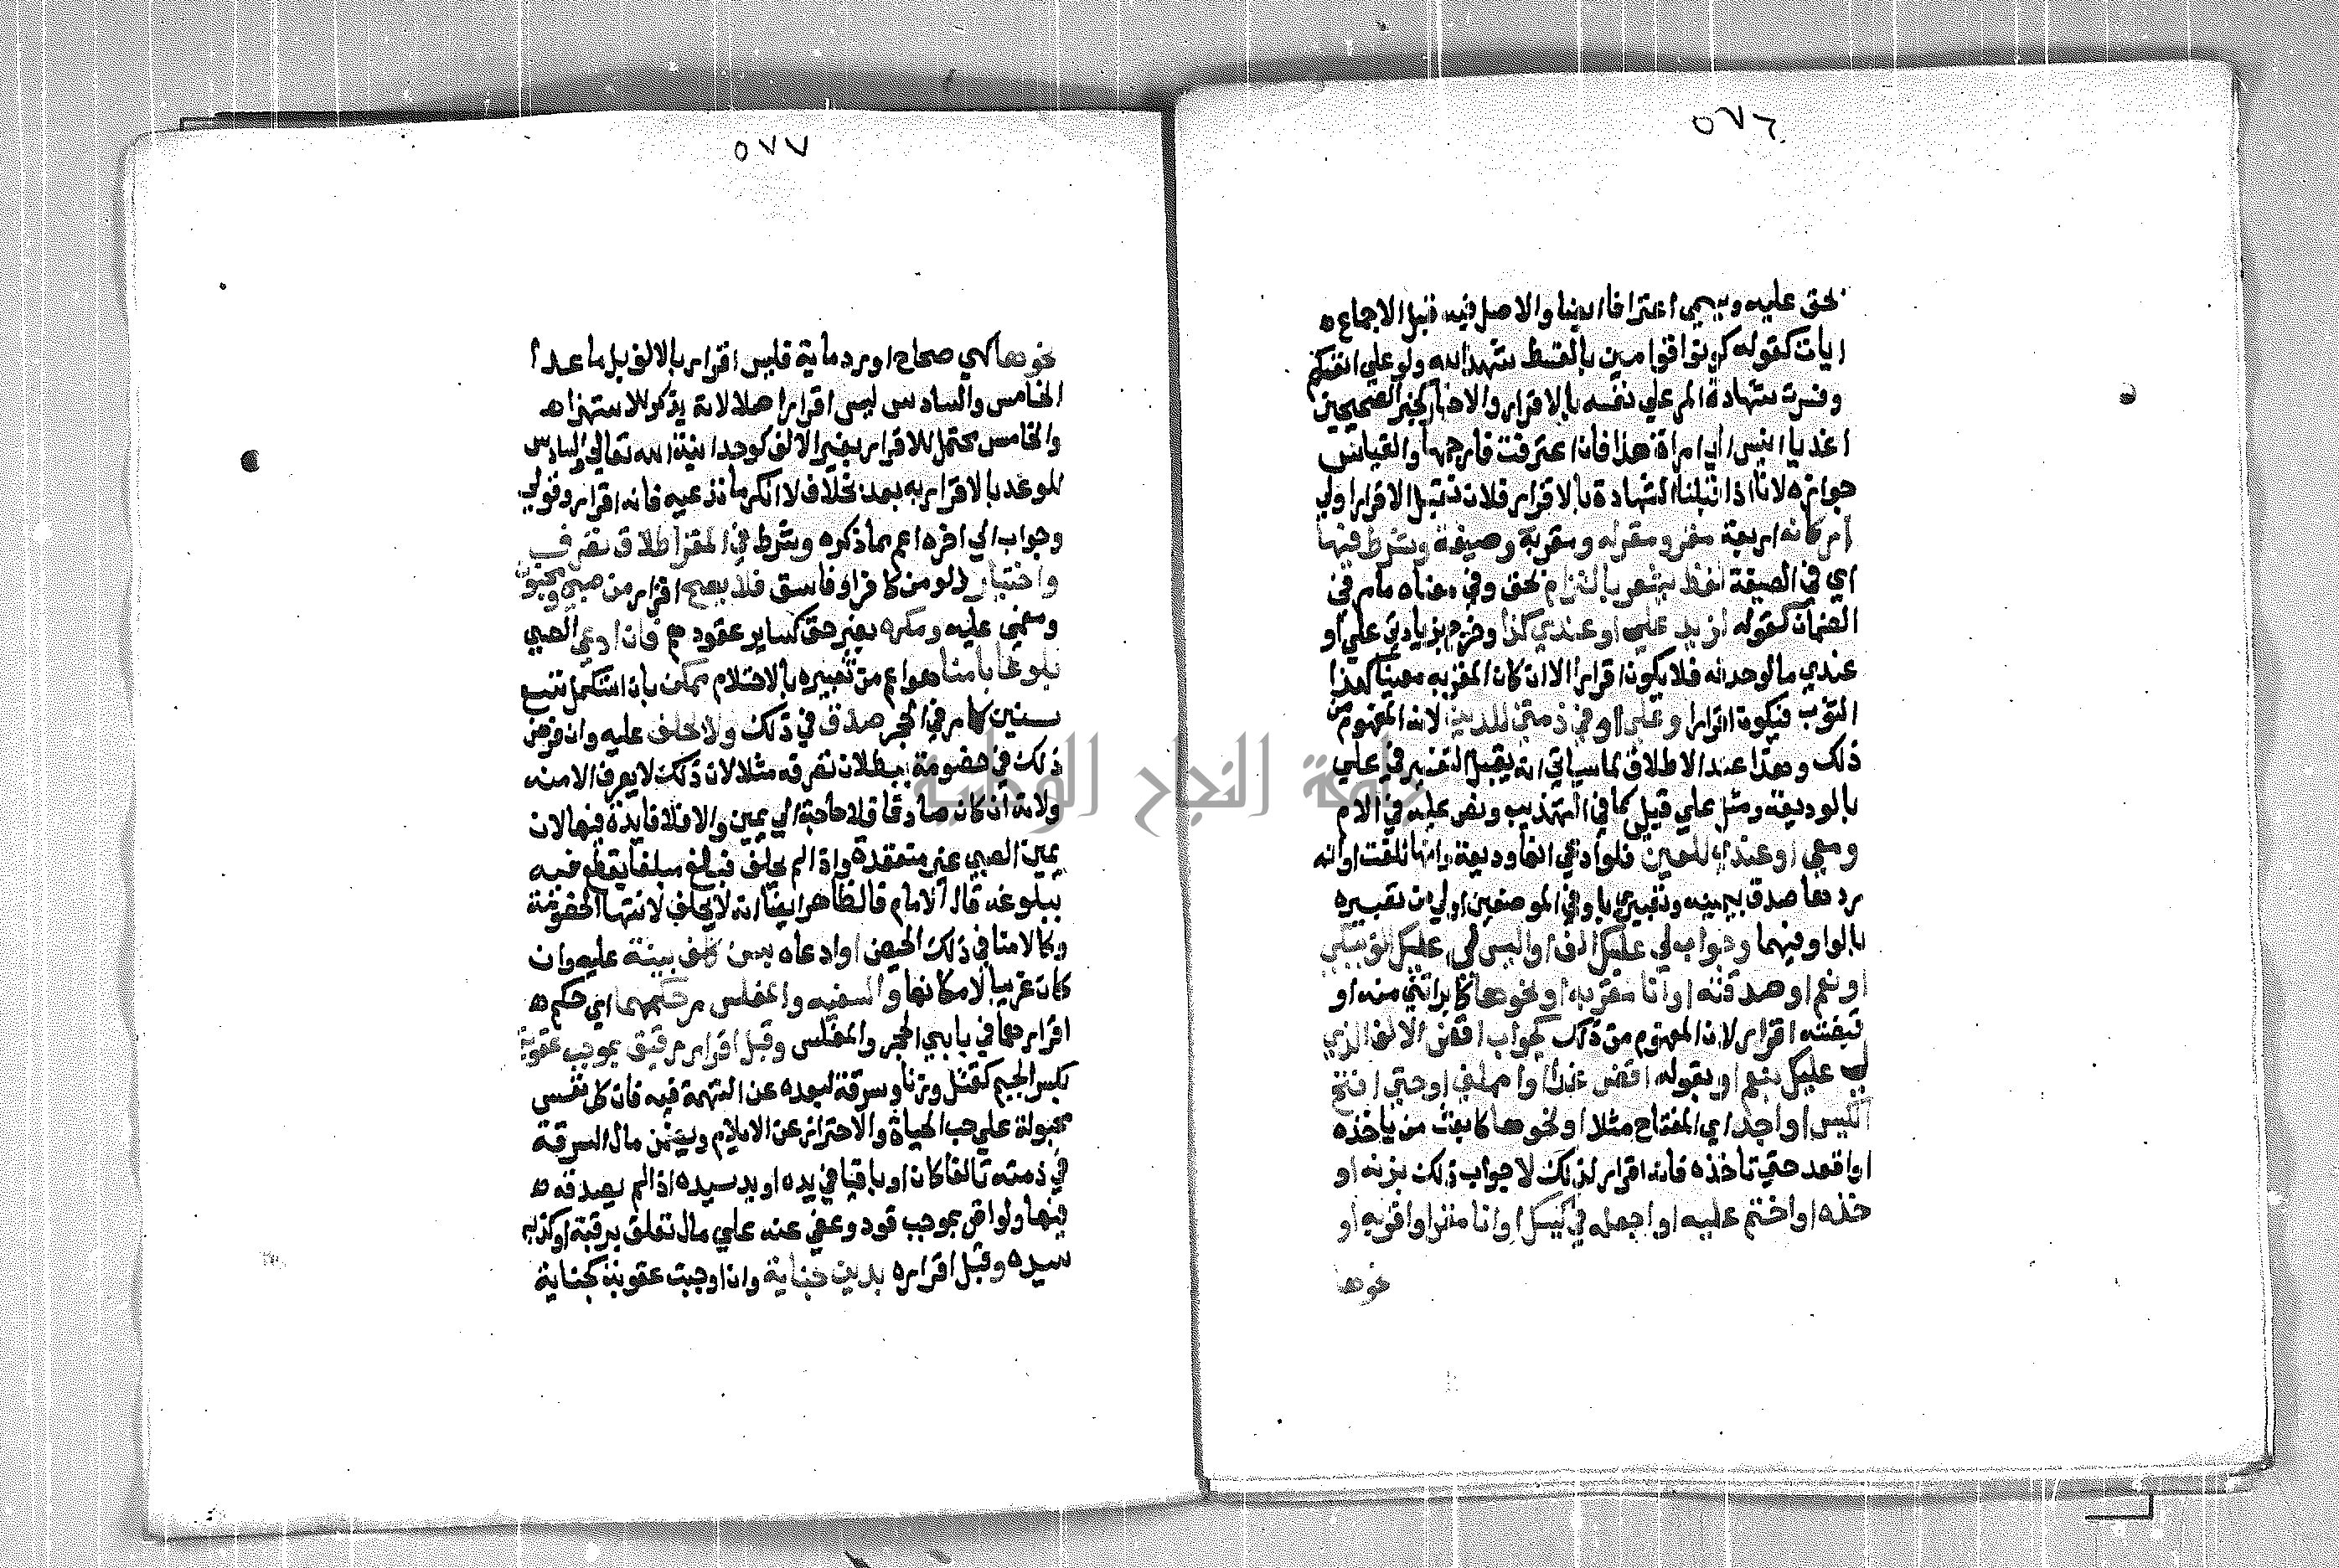 ٥٧٦
بحق عليه ويسمى اعترافا ايضا والاصل فيه قبل الاجماع
ايات كقوله كونوا قوامين بالقسط شهدا لله ولو علي انفسكم
وفسرت شهادة المرء علي نفسه بالاقرار والاخبار كخبر الصحيحين
اغد يا انيس الي امراة هذا فان اعترفت فارجمها والقياس
جوازه لانا اذا قبلنا الشهادة بالاقرار فلان نقبل الاقرار اولي
اركانه اربعة مقر ومقر له ومقر به وصيغة وشرط فيها
اي في الصيغة لفظ يشعر بالتزام بحق وفي معناه ما مر في
الضمان كقوله لزيد علي او عندي كذا وخرج بزيادتي علي او
عندي ما لو حذفه فلا يكون اقرارا الا ان كان المقر به معينا كهذا
الثوب فيكون اقرارا وعلي او في ذمتي للدين لانه المفهوم من
ذلك وهذا عند الاطلاق لما سياتي انه يقبل التفسير في علي
بالوديعة ومثل علي قبلي كما في التهذيب ونص عليه في الام
ومعي او عندي للعين فلو ادعي انها وديعة وانها تلفت او انه
ردها صدق بيمينه وتعبيري باو في الموضعين اولي من تعبيره
بالواو فيهما وجواب لي عليك الف او اليس لي عليك الف ببلي
او نعم او صدقت او انا مقر به او نحوها كابراتني منه او
قبضته اقرار لان المفهوم من ذلك كجواب اقض الالف الذي
لي عليك بنعم او بقوله اقض غدا او امهلني او حتي افتح
الكيس او اجد اي المفتاح مثلا او نحوها كابعث من ياخذه
او اقعد حتي تاخذه فانه اقرار لذلك لا جواب ذلك بزنه او
خذه او اختم عليه او اجعله في كيسك او انا مقر او اقر به او
نحوها
٥٧٧
نحوها كهي صحاح او رومية فليس اقرار بالالف بل ما عدا
الخامس والسادس ليس اقرارا اصلا لانه يذكر للاستهزا
والخامس محتمل للاقرار بغير الالف كوحدانية الله تعالي والسادس
للوعد بالاقرار به بعد بخلاف لا انكر ما تدعيه فانه اقرار وقولي
وجواب الي اخره اعم مما ذكره وشرط في المقر اطلاق تصرف
واختيار ولو من كافر او فاسق فلا يصح اقرار من صبي ومجنون
ومغمي عليه ومكره بغير حق كساير عقودهم فان ادعي الصبي
بلوغا بامنا هو اعم من تعبيره بالاحتلام ممكن بان استكمل تسع
سنين كما مر في الحجر صدق في ذلك ولا يحلف عليه وان فرض
ذلك في خصومة ببطلان تصرفه مثلا لان ذلك لا يعرف الا منه
ولانه ان كان صادقا فلا حاجة الي يمين والا فلا فايدة فيها لان
يمين الصبي غير منعقدة واذا لم يحلف فبلغ مبلغا يقطع فيه
ببلوغه قال الامام فالظاهر ايضا انه لا يحلف لانتها الخصومة
وكالامنا في ذلك الحيض او ادعاه بسن كلف بينة عليه وان
كان غريبا لامكانها والسفيه والمفلس مر حكمهما اي حكم
اقرارهما في بابي الحجر والمفلس وقبل اقرار رقيق بموجب عقوبة
بكسر الجيم كقتل وزنا وسرقة لبعده عن التهمة فيه فان كل نفس
مجبولة علي حب الحياة والاحتراز عن الايلام ويضمن مال السرقة
في ذمته تالفا كان او باقيا في يده او يد سيده اذا لم يصدقه
فيها ولو اقر بموجب قود وعفي عنه علي مال تعلق برقبته ولو كذبه
سيده وقبل اقراره بدين جناية وان اوجبت عقوبة كجناية
جامعة النجاح الوطنية